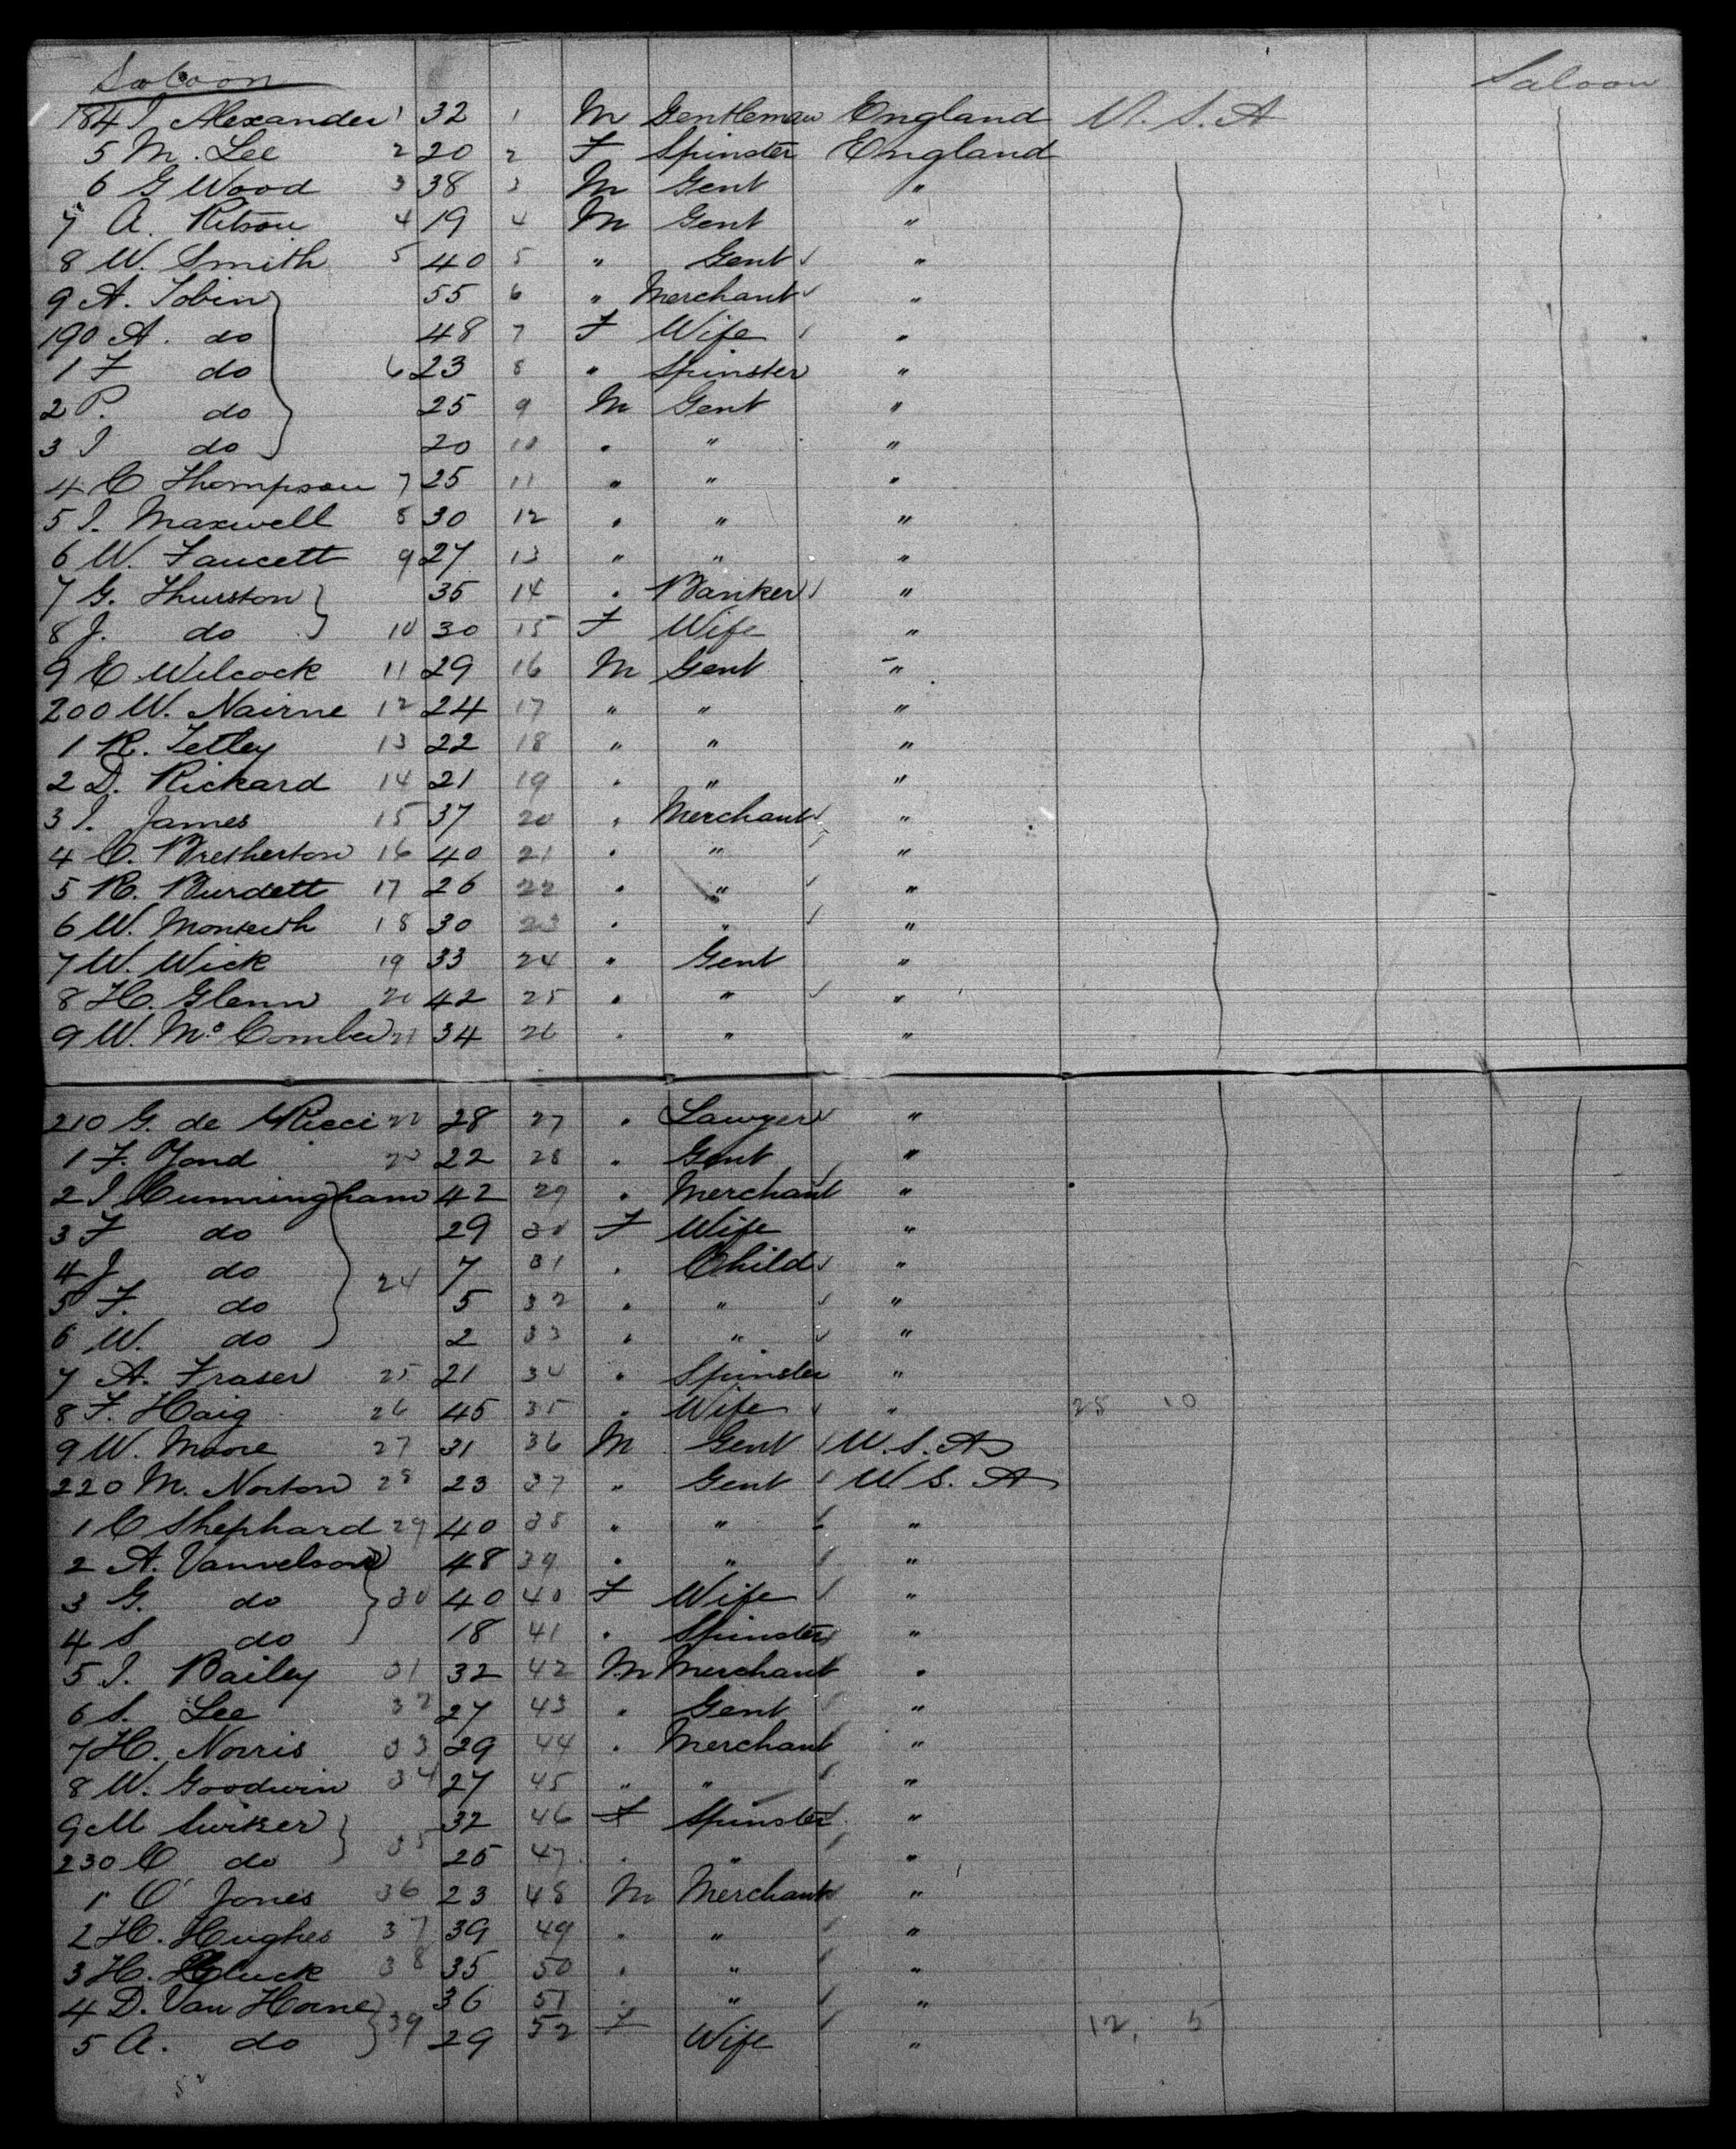 Saloon Saloon
184 J Alexander 1 32 1 M Gentleman England U. S. A
5 M. Lee 2 20 2 F Spinster England
6 G Wood 3 38 3 M Gent "
7 A. Ritson 4 19 4 M Gent "
8 W. Smith 5 40 5 " Gent "
9 A. Tobin 55 6 " Merchant "
190 A. do 48 7 F Wife "
1 F do 6 23 8 " Spinster "
2 P. do 25 9 M Gent "
3 J do 20 10 " " "
4 C Thompson 7 25 11 " " "
5 J. Maxwell 8 30 12 " " "
6 W. Faucett 9 27 13 " " "
7 G. Thurston 35 14 " Banker "
8 J. do 10 30 15 F Wife "
9 E Wilcock 11 29 16 M Gent "
200 W. Nairne 12 24 17 " " "
1 R. Tetley 13 22 18 " " "
2 D. Rickard 14 21 19 " " "
3 J. James 15 37 20 " Merchant "
4 C. Bretherton 16 40 21 " " "
5 R. Burdett 17 26 22 " " "
6 W. Monteith 18 30 23 " " "
7 W. Wick 19 33 24 " Gent "
8 H. Glenn 20 42 25 " " "
9 W. Mc Comber 21 34 26 " " "
210 G. de Ricci 22 28 27 " Lawyer "
1 F. Yond 23 22 28 " Gent "
2 J Cunningham 42 29 " Merchant "
3 F do 29 30 F Wife "
4 J do 24 7 31 " Child "
5 F. do 5 32 " " "
6 W. do 2 33 " " "
7 A. Fraser 25 21 34 " Spinster "
8 F. Haig 26 45 35 " Wife " 28 10
9 W. Moore 27 31 36 M Gent U. S. A
220 M. Norton 28 23 37 " Gent U. S. A
1 C Shephard 29 40 38 " " "
2 A. Vannelson 48 39 " " "
3 G. do 30 40 40 F Wife "
4 S do 18 41 " Spinster "
5 J. Bailey 31 32 42 M Merchant "
6 S. Lee 32 27 43 " Gent "
7 H. Norris 33 29 44 " Merchant "
8 W. Goodwin 34 27 45 " " "
9 M Switzer 32 46 F Spinster "
230 C do 35 25 47 " " "
1 O Jones 36 23 48 M Merchant "
2 H. Hughes 37 39 49 " " "
3 H. Gluck 38 35 50 " " "
4 D. Van Horne 36 51 " " "
5 A. do 39 29 52 F Wife " 12, 5